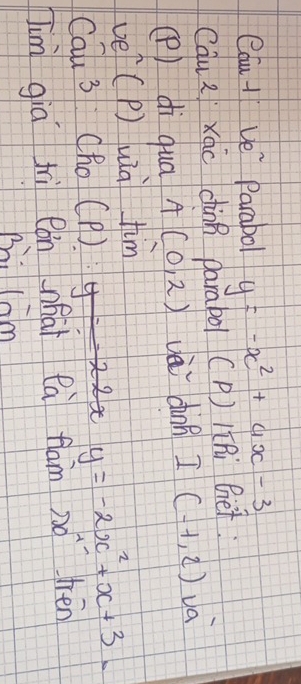 Câu 1: vẽ Parabol y = -x² + 4x - 3
Câu 2: xác định parabol (P) khi biết:
(P) đi qua A (0,2) và đỉnh I (-1,2) và
vẽ (P) vừa tìm
Câu 3: Cho (P): y = -2x² + x + 3.
Tìm giá trị lớn nhất là hàm số trên
Bài làm